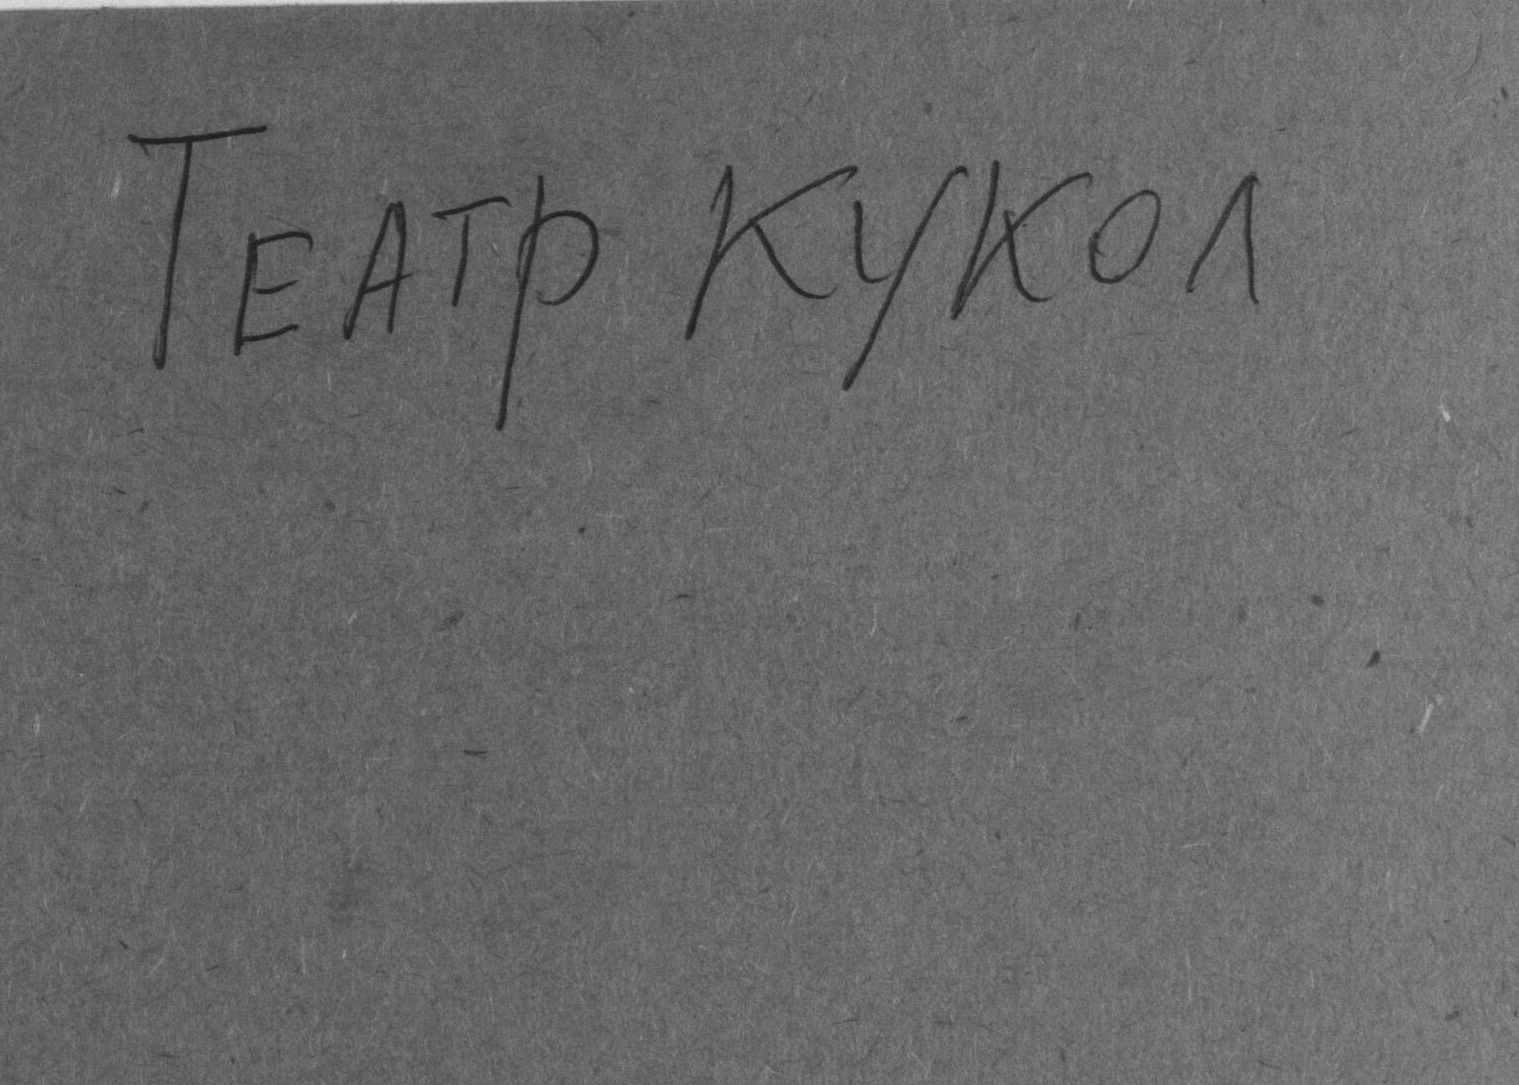 Театр кукол